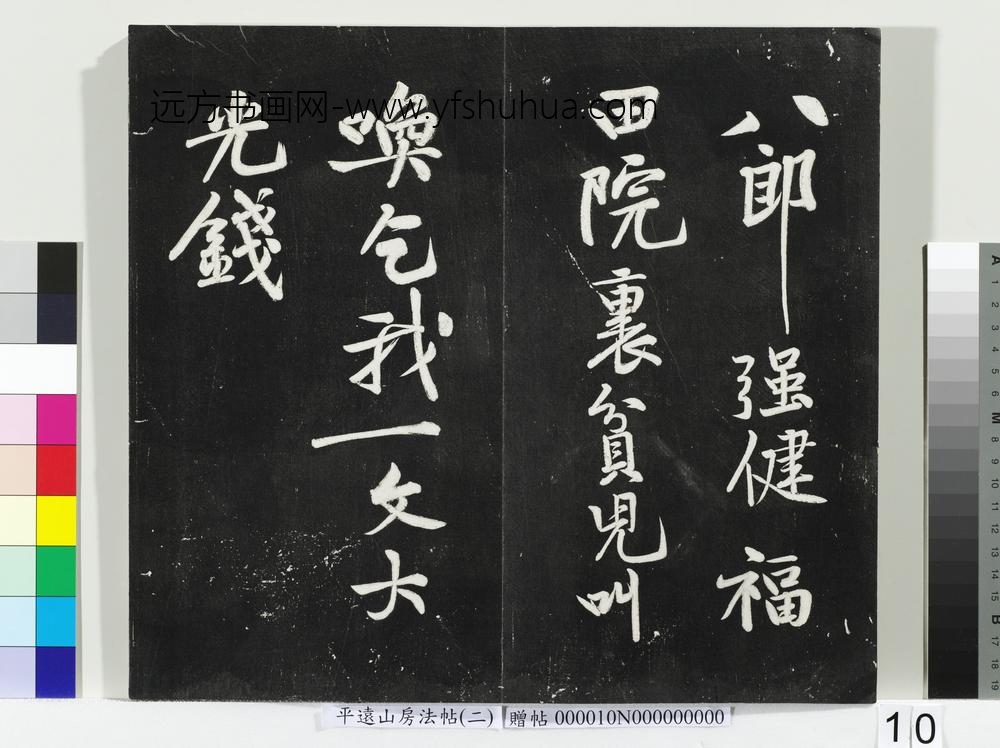 八郎强健福
田院裏貧児叫
喚乞我一文大
光錢
远方书画网-www.yfshuhua.com
平遠山房法帖(二)
贈帖 000010N000000000
10
A 1 2 3 4 5 6 M 8 9 10 11 12 13 14 15 B 17 18 19